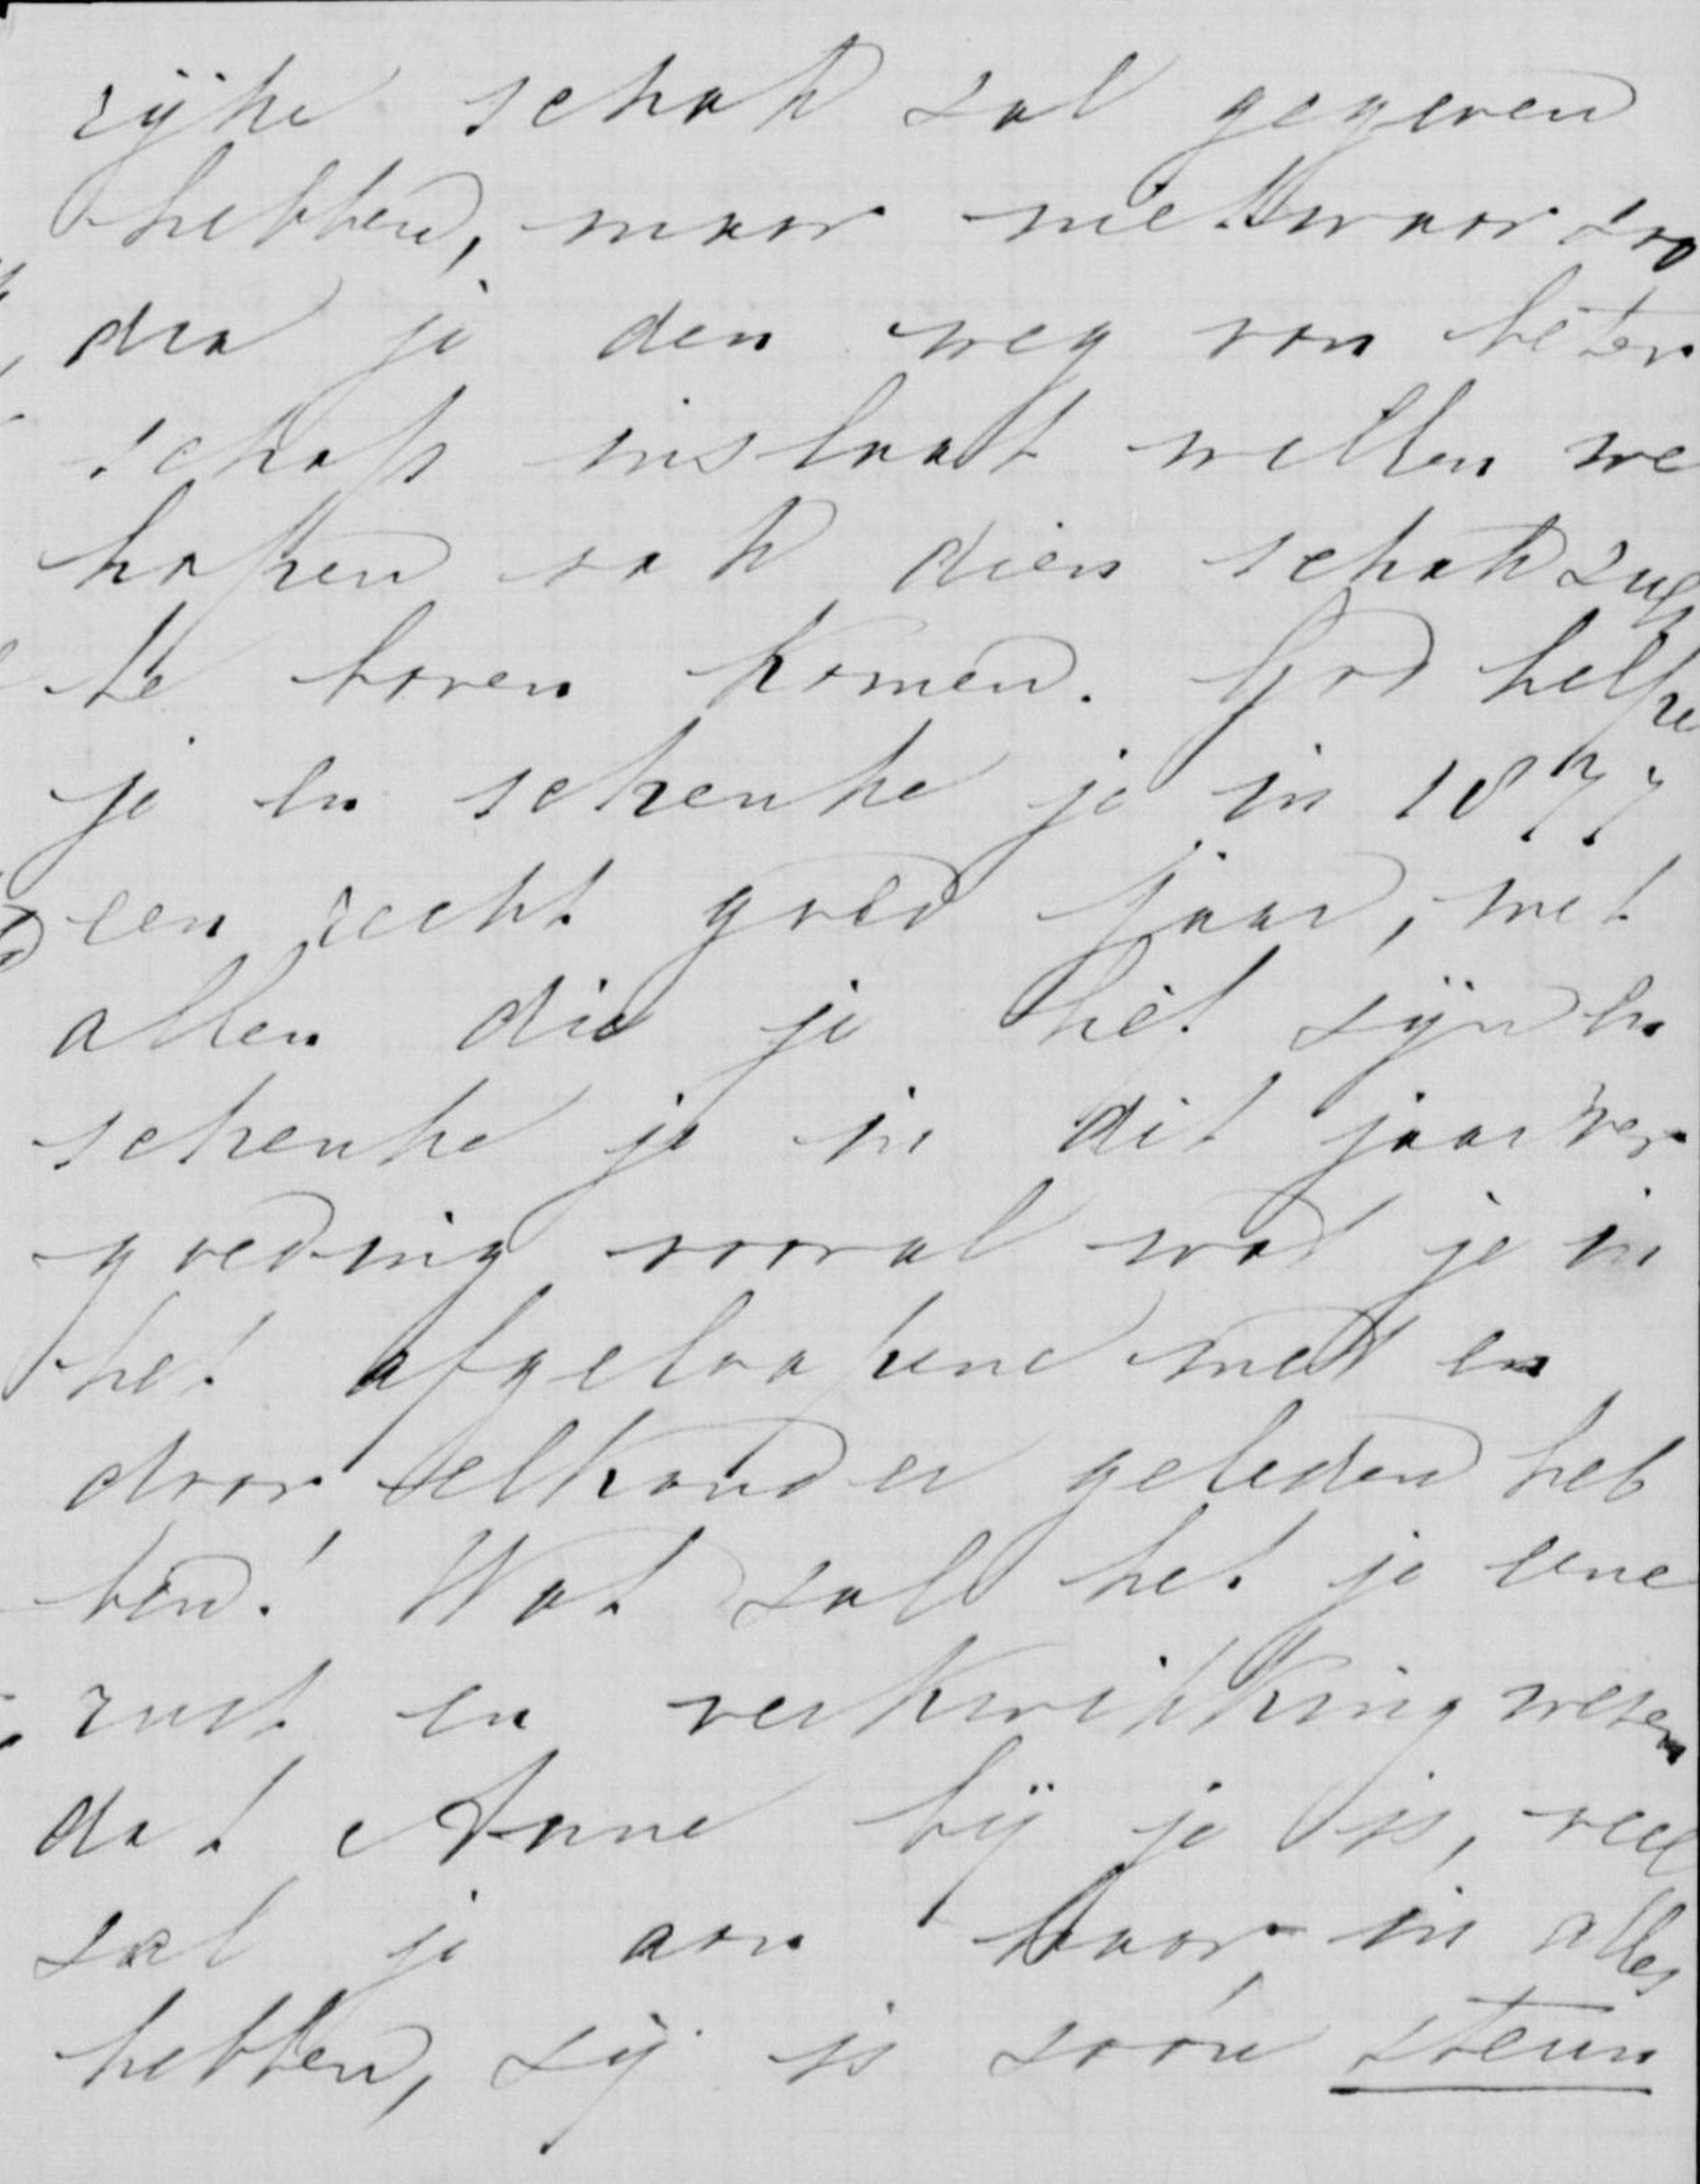 rijke schok zal gegeven
hebben, maar niet waar zoo
dra je den weg van beter
schap inslaat willen we
hopen ook dien schok zult
te boven komen. God helpe
je en schenke je in 1877
een recht goed jaar, met
allen die je lief zijn en
schenke je in dit jaar ver
goeding vooral wat je in
het afgeloopene met en
door elkander geleden heb
ben! Wat zal het je eene
rust en verkwikking wezen
dat Anne bij je is, veel
zal je aan haar in alles
hebben, zij is zoo'n steun